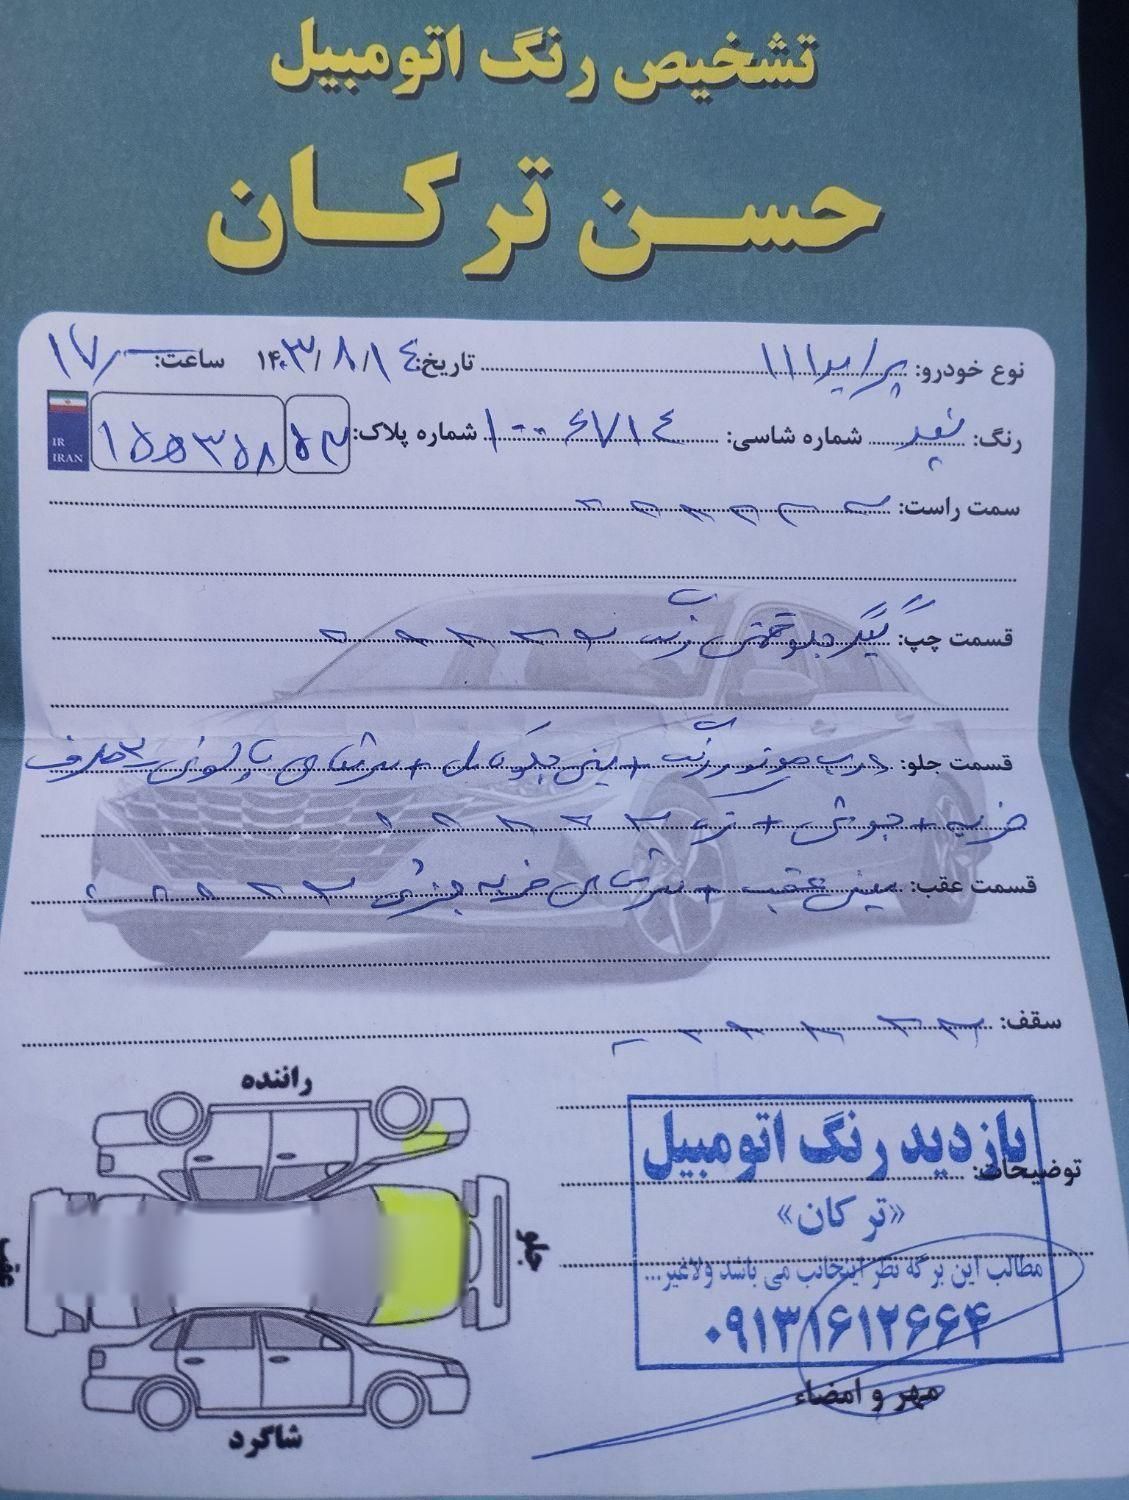 تشخیص رنگ اتومبیل
حسن ترکان
نوع خودرو: پراید ۱۱۱ تاریخ: ۱۴۰۳/۸/۱۴ ساعت: ۱۷
رنگ: سفید شماره شاسی: ۱۰۰۶۷۱۴ شماره پلاک:
IR
IRAN
سمت راست:
قسمت چپ: گلگیر جلو رنگ
قسمت جلو: درب موتور رنگ + سینی جلو کامل + سرشاسی پالونی ۲ طرف
ضربه + جوش +
قسمت عقب: سینی عقب + سرشاسی ضربه جزئی
سقف:
راننده
جلو
عقب
شاگرد
توضیحات:
بازدید رنگ اتومبیل
«ترکان»
مطالب این برگه نظر اینجانب می باشد ولاغیر...
۰۹۱۳۱۶۱۲۶۶۴
مهر و امضاء